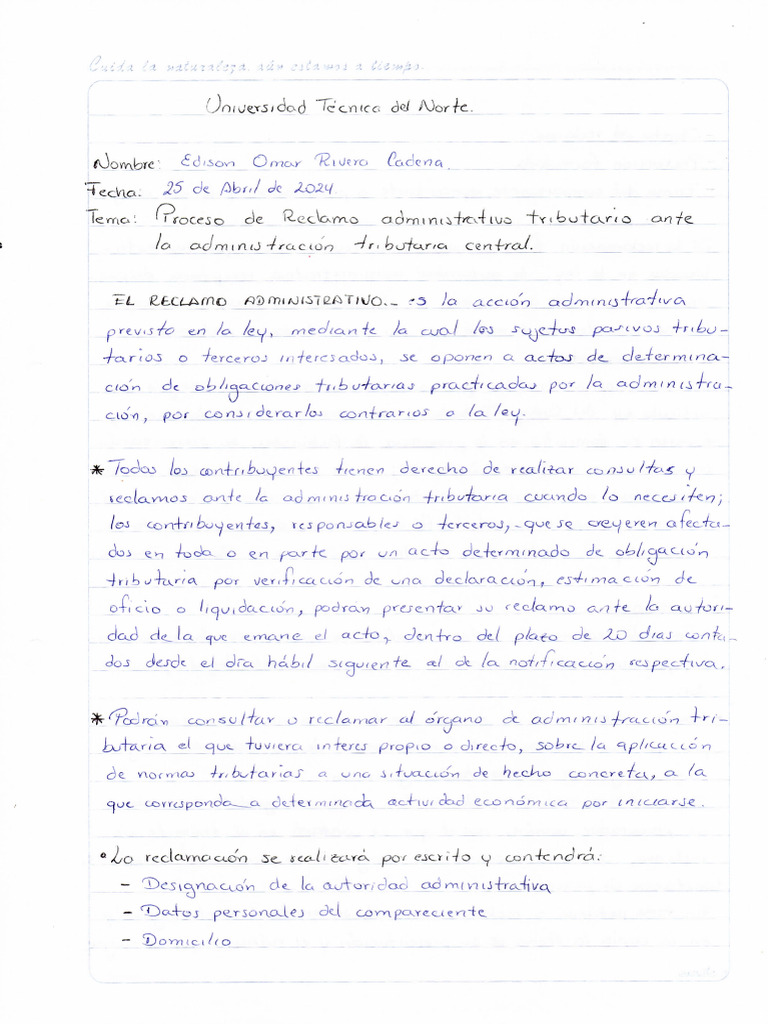 Cuida la naturaleza, aún estamos a tiempo.
Universidad Técnica del Norte.
Nombre: Edison Omar Rivera Cadena.
Fecha: 25 de Abril de 2024
Tema: Proceso de Reclamo administrativo tributario ante
la administración tributaria central.
EL RECLAMO ADMINISTRATIVO.- es la acción administrativa
previsto en la ley, mediante la cual los sujetos pasivos tribu-
tarios o terceros interesados, se oponen a actos de determina-
ción de obligaciones tributarias practicadas por la administra-
ción, por considerarlos contrarios a la ley.
* Todas los contribuyentes tienen derecho de realizar consultas y
reclamos ante la administración tributaria cuando lo necesiten;
los contribuyentes, responsables o terceros, que se creyeren afecta-
dos en todo o en parte por un acto determinado de obligación
tributaria por verificación de una declaración, estimación de
oficio o liquidación, podran presentar su reclamo ante la autori-
dad de la que emane el acto, dentro del plazo de 20 dias conta-
dos desde el día hábil siguiente al de la notificación respectiva.
* Podrán consultar o reclamar al órgano de administración tri-
butaria el que tuviera interes propio o directo, sobre la aplicación
de normas tributarias a una situación de hecho concreta, a la
que corresponda a determinada actividad económica por iniciarse.
• La reclamación se realizará por escrito y contendrá:
- Designación de la autoridad administrativa
- Datos personales del compareciente
- Domicilio